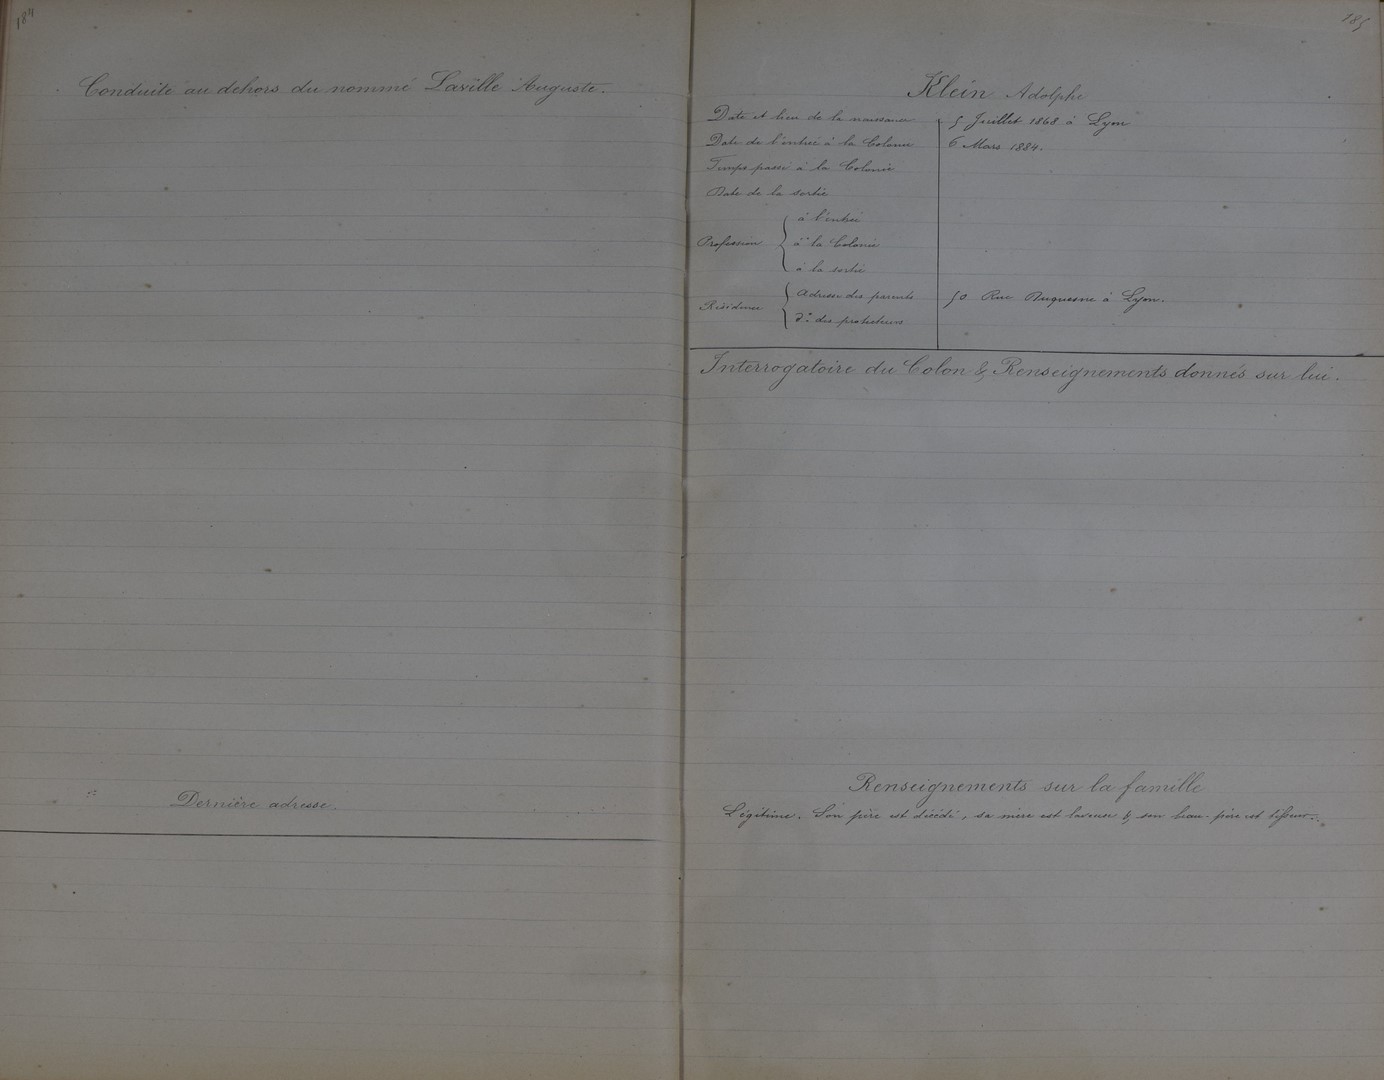 184
Conduite au dehors du nommé Laville Auguste.
Dernière adresse.
185
Klein Adolphe
Date et lieu de la naissance 5 Juillet 1868 à Lyon
Date de l'entrée à la Colonie 6 Mars 1884.
Temps passé à la Colonie
Date de la sortie
Profession
à l'entrée
à la Colonie
à la sortie
Résidence
Adresse des parents 50 Rue Duquesne à Lyon.
d.° des protecteurs
Interrogatoire du Colon & Renseignements donnés sur lui.
Renseignements sur la famille
Légitime. Son père est décédé, sa mère est laveuse & son beau-père est